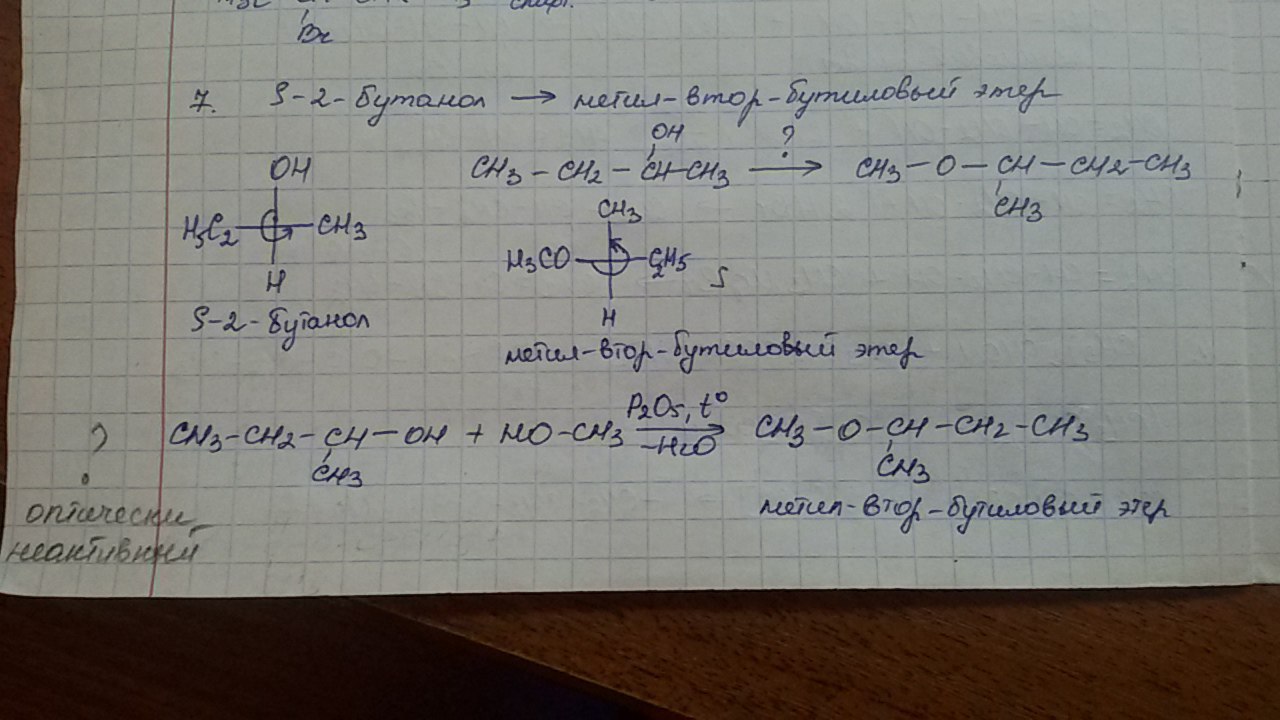 Br
7. S-2-бутанол → метил-втор-бутиловый этер
OH
CH3 - CH2 - CH-CH3 ? → CH3 - O - CH - CH2 - CH3
CH3
OH
H5C2 CH3
H
S-2-бутанол
CH3
H3CO C2H5 S
H
метил-втор-бутиловый этер
? CH3-CH2-CH-OH + HO-CH3 P2O5, t° → -H2O CH3-O-CH-CH2-CH3
CH3 CH3
метил-втор-бутиловый этер
оптически
неактивный